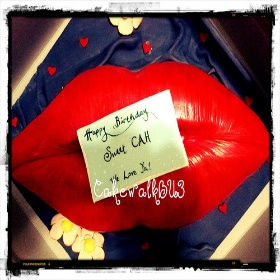 Happy Birthday
Sweet CAH
We Love Ya!
CakewalkBU3